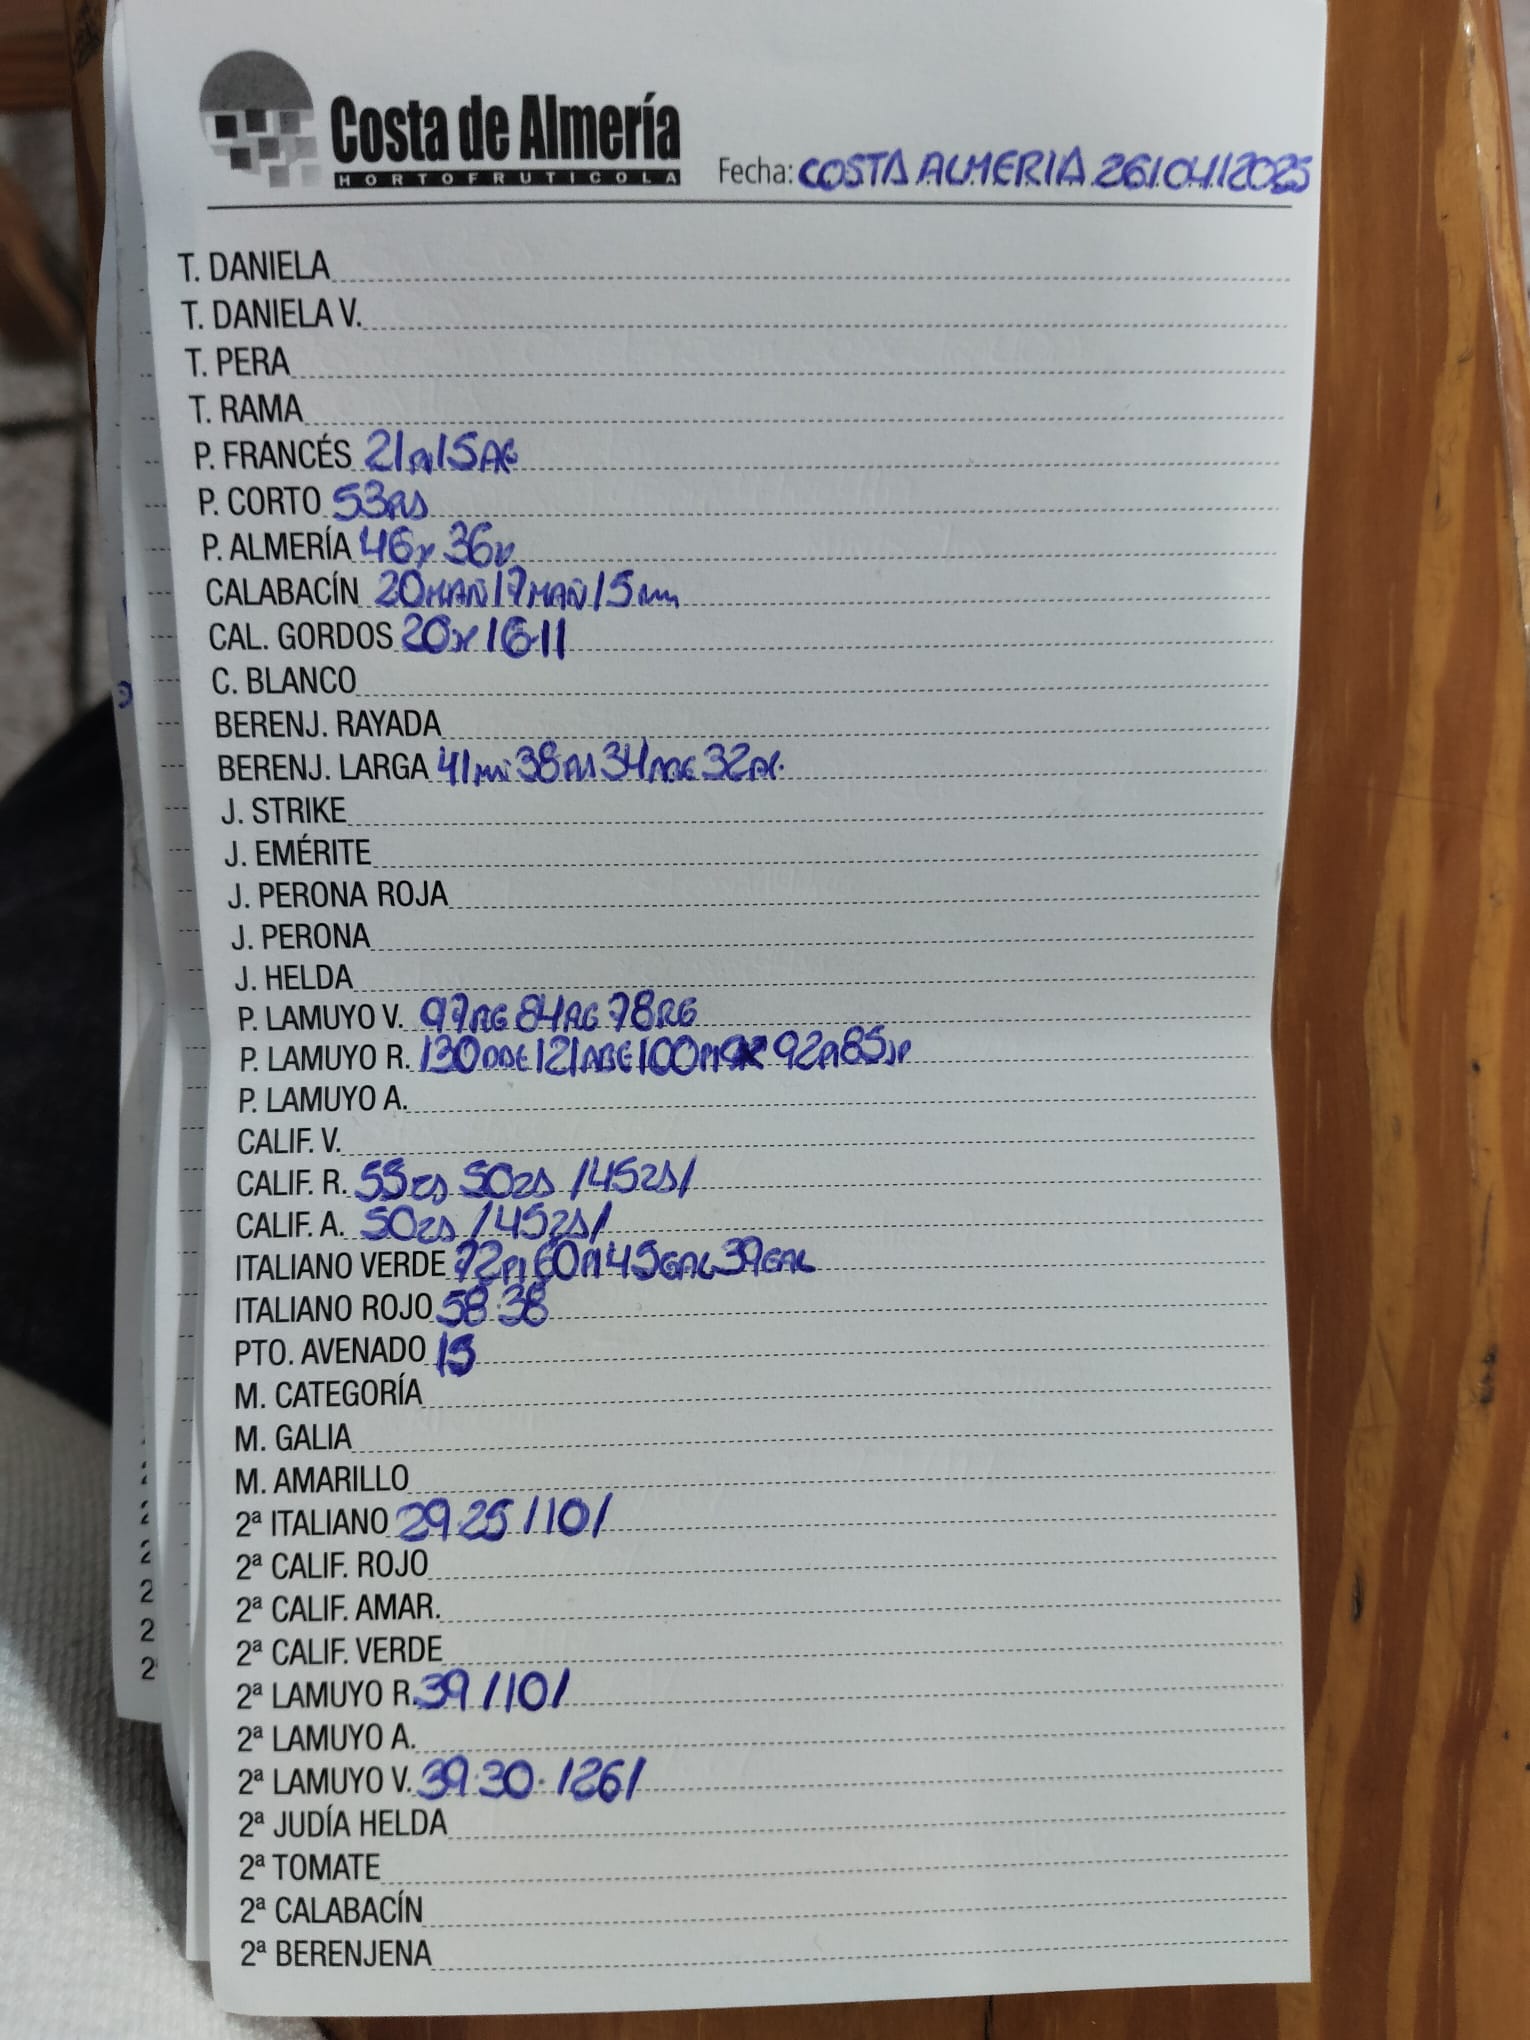 Costa de Almería
HORTOFRUTICOLA
Fecha: COSTA ALMERIA 26/04/2025
T. DANIELA
T. DANIELA V.
T. PERA
T. RAMA
P. FRANCÉS 21PI15AG
P. CORTO 53AS
P. ALMERÍA 46x 36x
CALABACÍN 20MAÑ17MAÑ15
CAL. GORDOS 20x1611
C. BLANCO
BERENJ. RAYADA
BERENJ. LARGA 41 38 34ABE 32
J. STRIKE
J. EMÉRITE
J. PERONA ROJA
J. PERONA
J. HELDA
P. LAMUYO V. 97AG 84AG 78AG
P. LAMUYO R. 130 121ABE100PI 92PI85JP
P. LAMUYO A.
CALIF. V.
CALIF. R. 55ZS 50ZS /45ZS/
CALIF. A. 50ZS /45ZS/
ITALIANO VERDE 72PI60PI45GAL39GAL
ITALIANO ROJO 58·38
PTO. AVENADO 15
M. CATEGORÍA
M. GALIA
M. AMARILLO
2ª ITALIANO 29·25 /10/
2ª CALIF. ROJO
2ª CALIF. AMAR.
2ª CALIF. VERDE
2ª LAMUYO R. 39 /10/
2ª LAMUYO A.
2ª LAMUYO V. 39·30· /26/
2ª JUDÍA HELDA
2ª TOMATE
2ª CALABACÍN
2ª BERENJENA